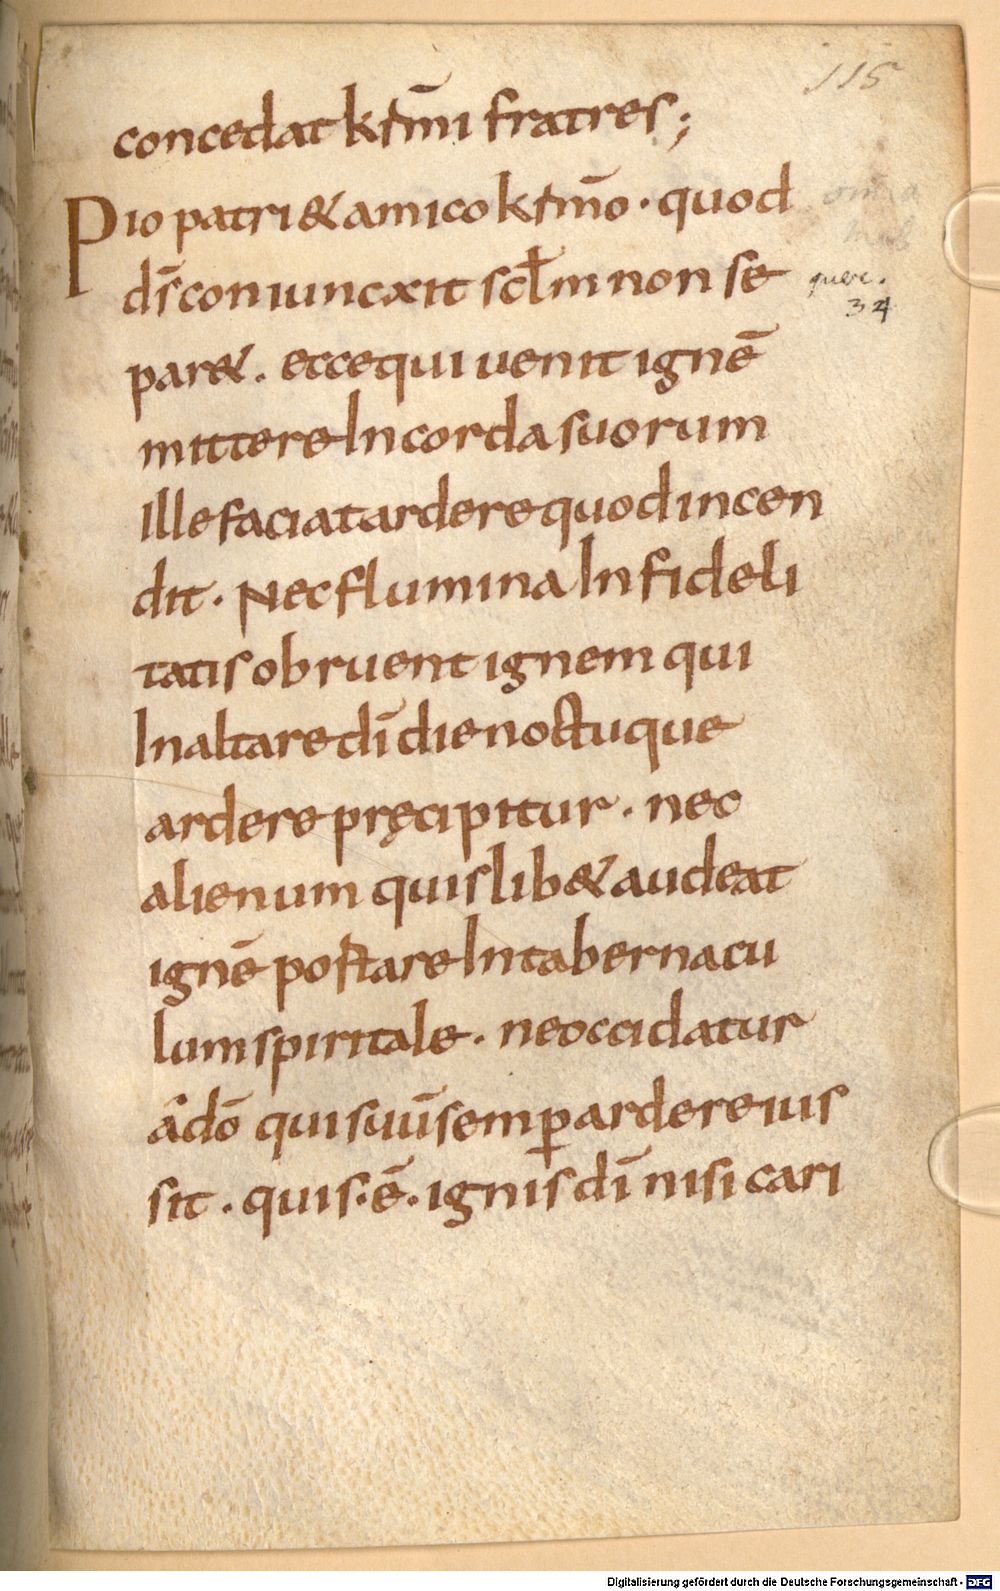 115
concedat krm̄i fratres;
Pio patri & amico krm̄o · quod
ds̄ coniuncxit scłm non se
par& . ecce qui uenit ignē
mittere In corda suorum
Ille faciat ardere quod incen
dit · Nec flumina Infideli
tatis obruent ignem qui
In altare dī die noctuque
ardere pręcipitur · nec
alienum quislib& audeat
ignē portare In tabernacu
lum spiritale · ne occidatur
a dō qui suū semꝑ ardere ius
sit · quis · ē · ignis dī nisi cari
34
Digitalisierung gefördert durch die Deutsche Forschungsgemeinschaft - DFG